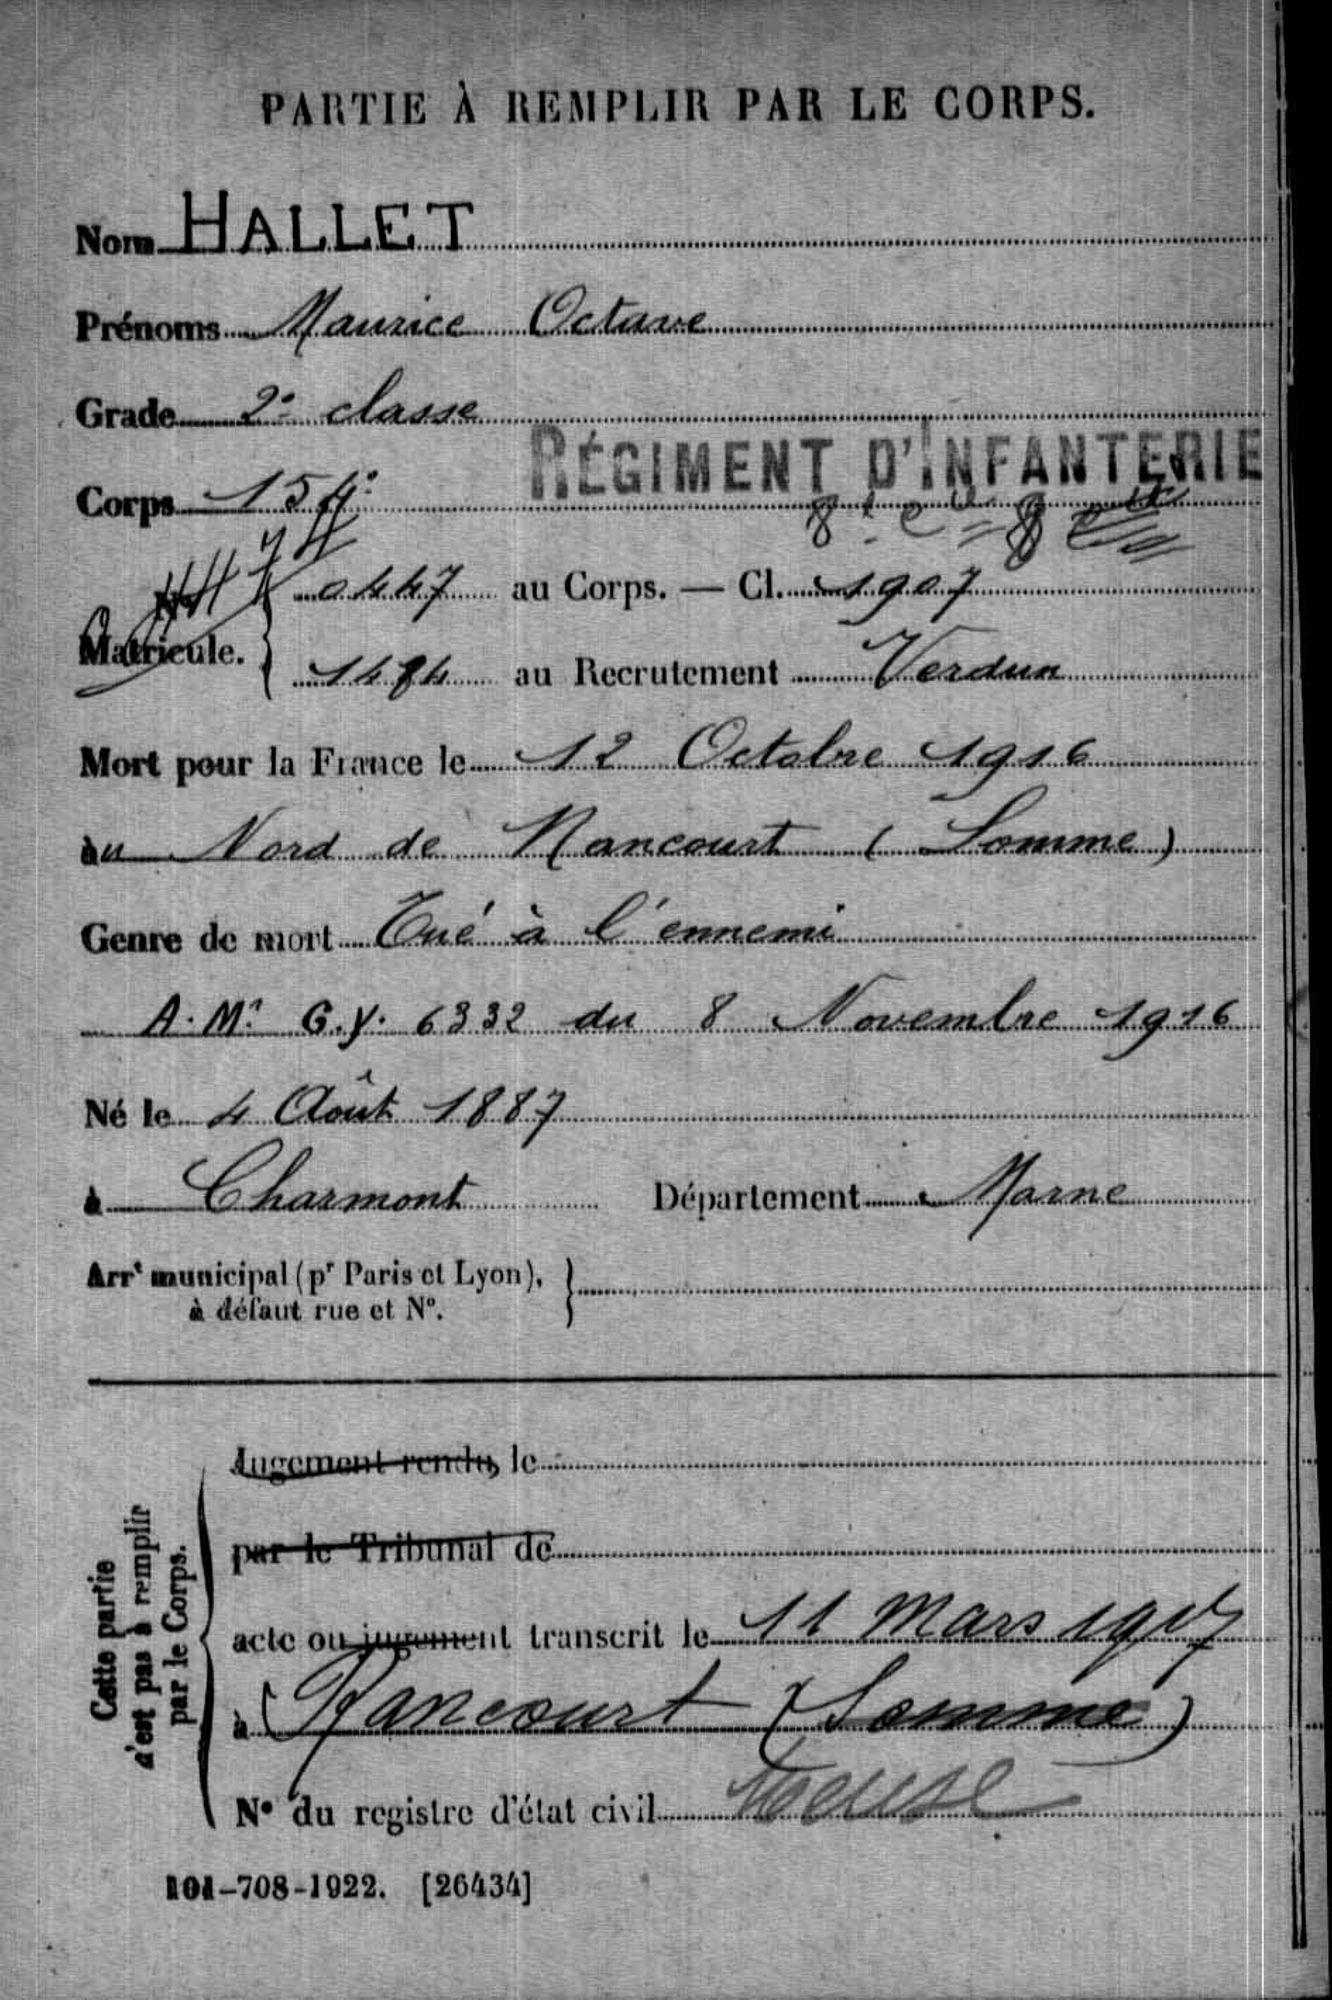 PARTIE À REMPLIR PAR LE CORPS.
Nom HALLET
Prénoms Maurice Octave
Grade 2e classe
RÉGIMENT D'INFANTERIE
Corps 154e
0447 au Corps. — Cl. 1907
Matricule.
1484 au Recrutement Verdun
Mort pour la France le 12 Octobre 1916
au Nord de Rancourt (Somme)
Genre de mort Tué à l'ennemi
A. Mn G.Y. 6332 du 8 Novembre 1916
Né le 4 Août 1887
à Charmont Département Marne
Arrt municipal (pr Paris et Lyon),
à défaut rue et N°.
Cette partie
n'est pas à remplir
par le Corps.
Jugement rendu, le
par le Tribunal de
acte ou jugement transcrit le 11 Mars 1917
à Rancourt (Somme)
N° du registre d'état civil Meuse
101-708-1922. [26434]